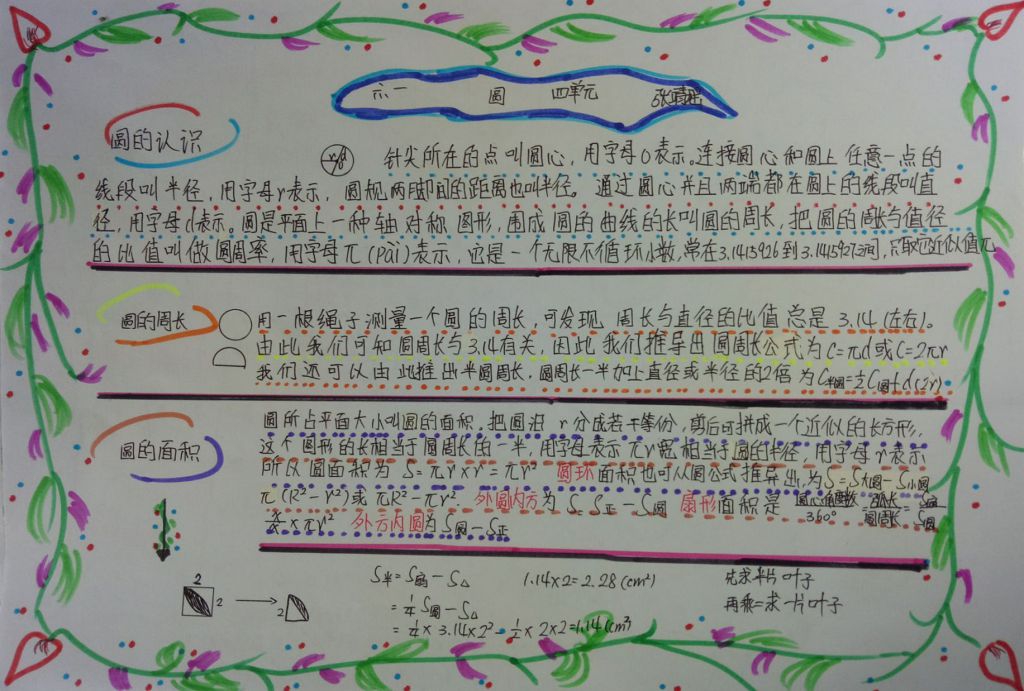 六一 圆 四单元 张靖瑶
圆的认识
r d
针尖所在的点叫圆心，用字母O表示。连接圆心和圆上任意一点的
线段叫半径，用字母r表示，圆规两脚间的距离也叫半径。通过圆心并且两端都在圆上的线段叫直
径，用字母d表示。圆是平面上一种轴对称图形，围成圆的曲线的长叫圆的周长，把圆的周长与值径
的比值叫做圆周率，用字母π(pài)表示，它是一个无限不循环小数，常在3.1415926到3.1415927之间，只取它近似值π
圆的周长
用一根绳子测量一个圆的周长，可发现周长与直径的比值总是3.14(左右)。
由此我们可知圆周长与3.14有关，因此我们推导出圆周长公式为C=πd或C=2πr
我们还可以由此推出半圆周长，圆周长一半加上直径或半径的2倍为C半圆=½C圆+d(2r)
圆的面积
圆所占平面大小叫圆的面积，把圆沿r分成若干等份，剪后可拼成一个近似的长方形，
这个图形的长相当于圆周长的一半，用字母表示πr宽相当于圆的半径，用字母r表示
所以圆面积为S=πr×r=πr² 圆环面积也可从圆公式推导出，为S=S大圆-S小圆
π(R²-r²)或πR²-πr² 外圆内方为S=S正-S圆 扇形面积是 圆心角度数/360°=弧长/圆周长=S扇/S圆
×πr² 外方内圆为S圆-S正
S半=S扇-S△ 1.14×2=2.28(cm²) 先求半片叶子
=¼S圆-S△ 再乘二求一片叶子
=¼×3.14×2²-½×2×2=1.14(cm²)
2
2
2